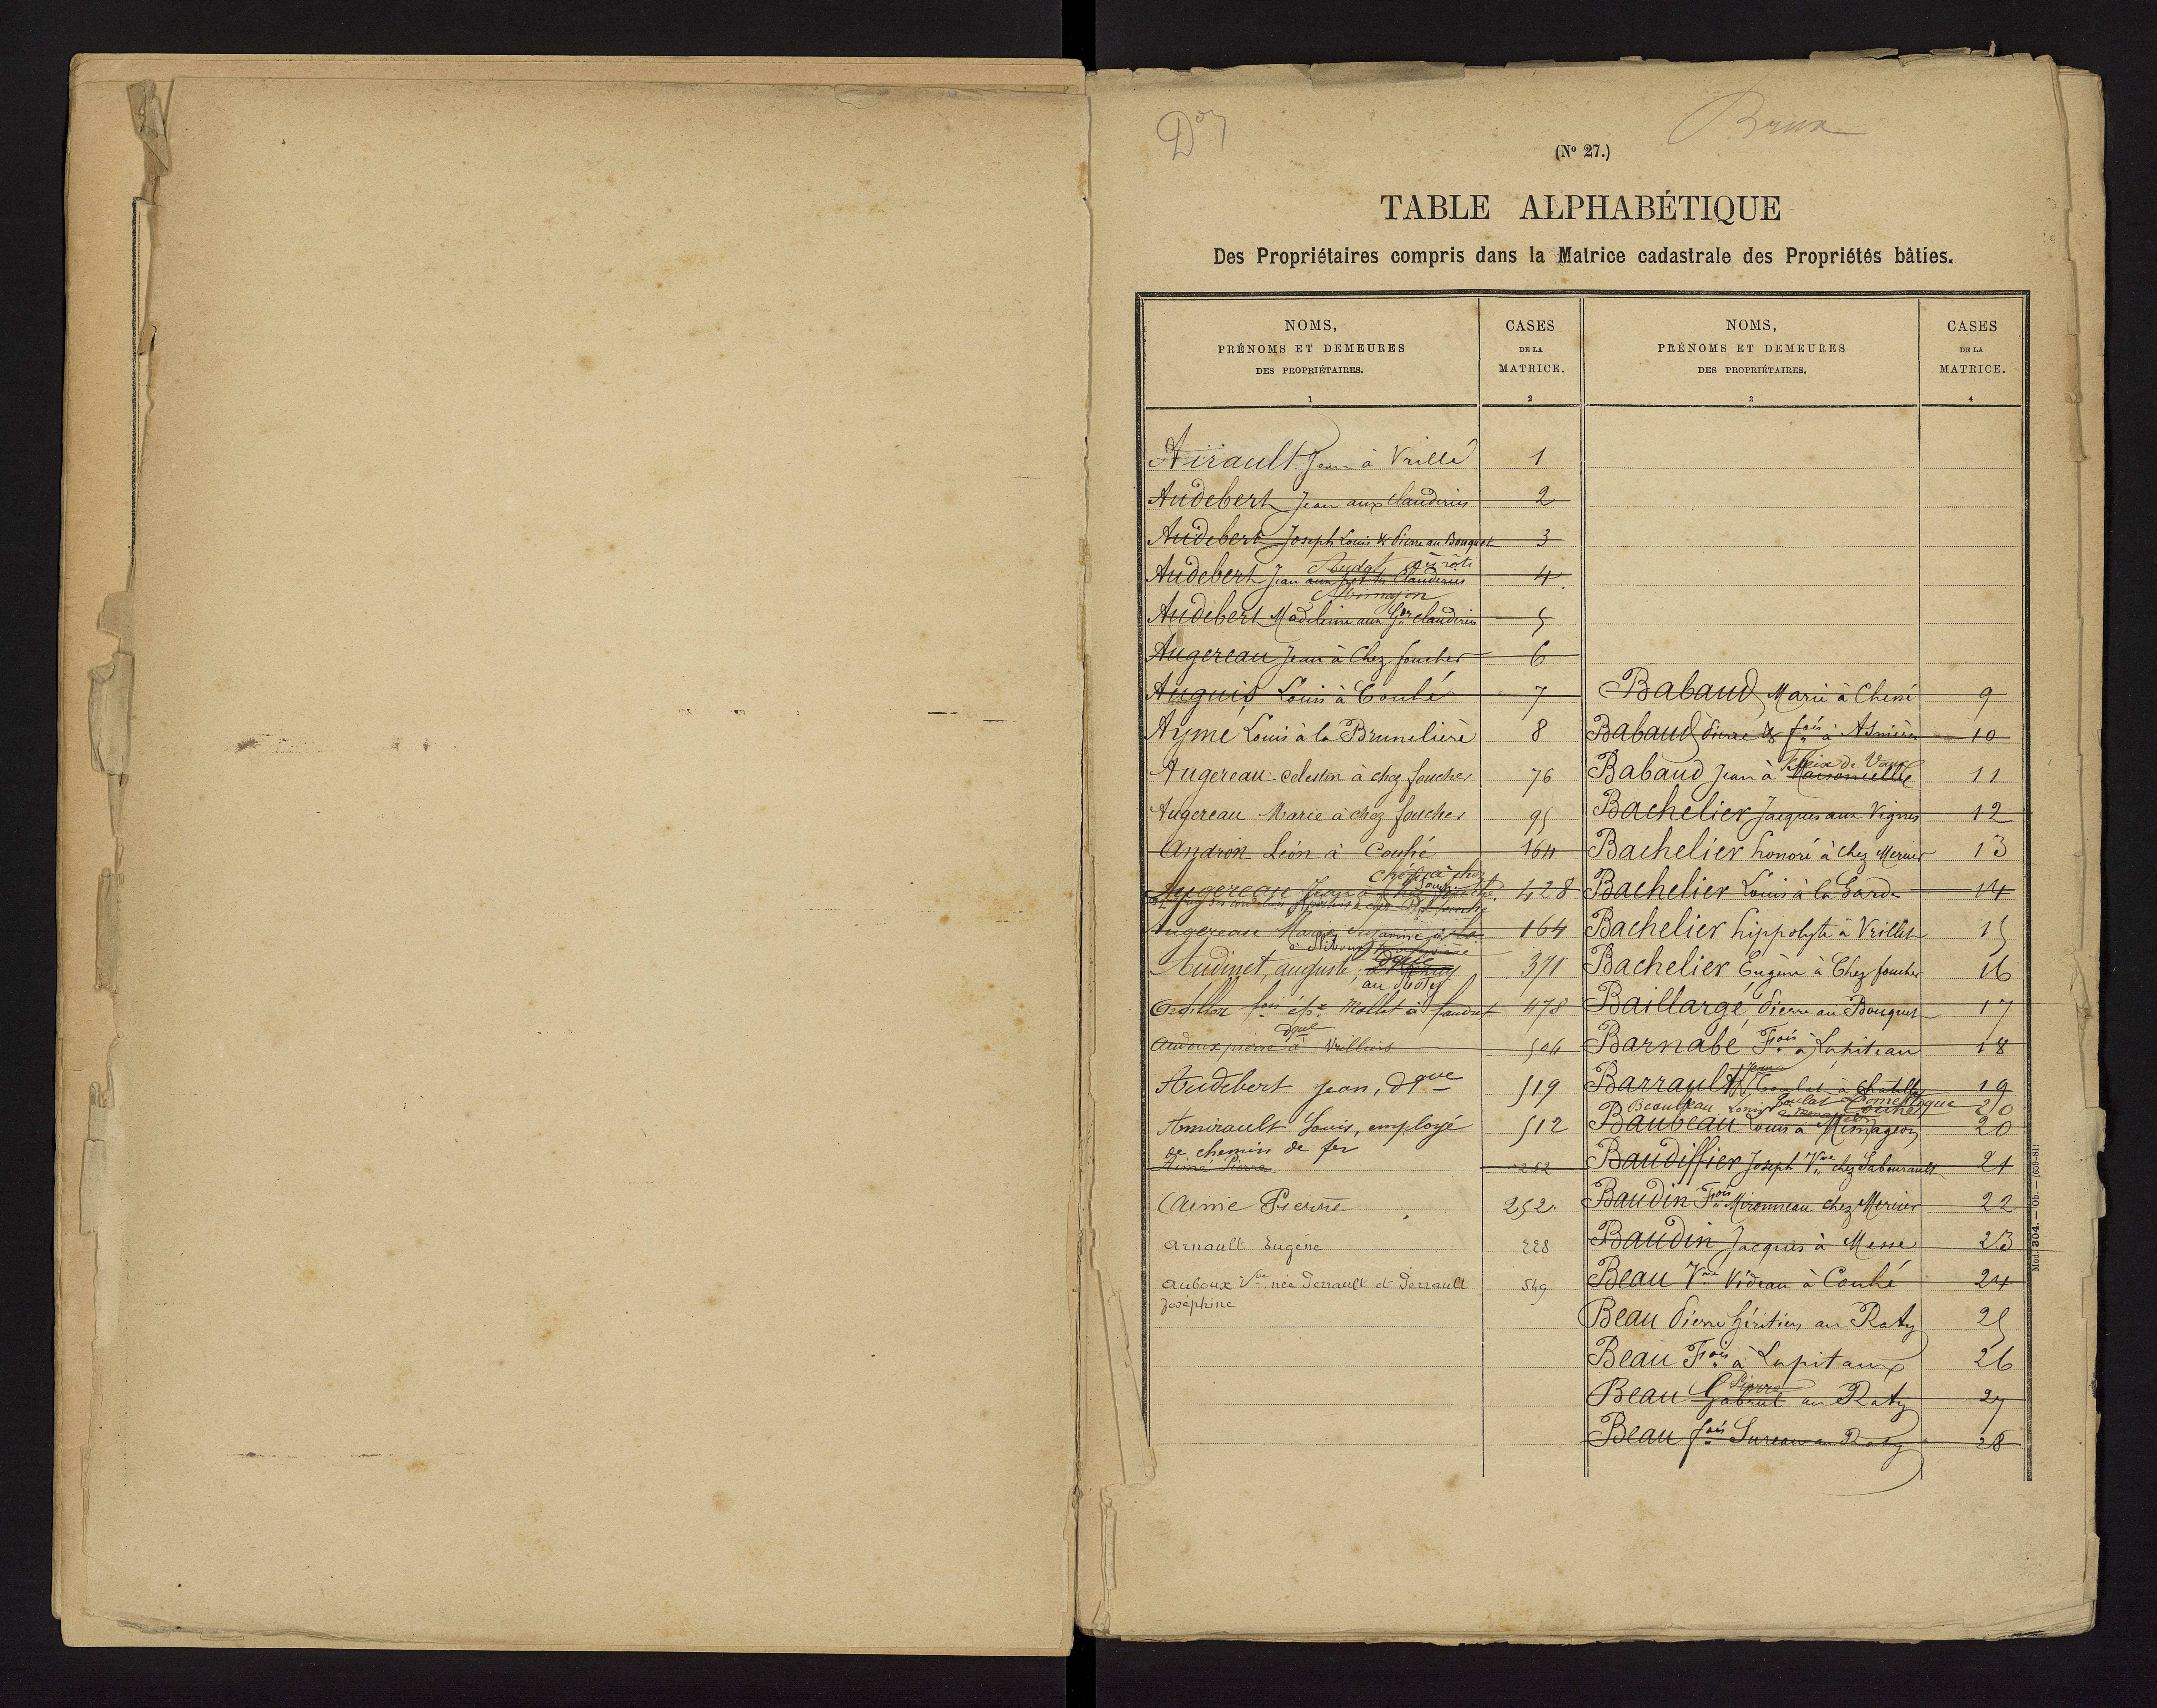 Brux
(Nº 27.)
TABLE ALPHABÉTIQUE
Des Propriétaires compris dans la Matrice cadastrale des Propriétés bâties.
NOMS,
PRÉNOMS ET DEMEURES
DES PROPRIÉTAIRES.
1
CASES
DE LA
MATRICE.
2
NOMS,
PRÉNOMS ET DEMEURES
DES PROPRIÉTAIRES.
3
CASES
DE LA
MATRICE.
4
Airault Jean à Vrillé 1
Audebert Jean aux Clauderies 2
Audebert Joseph Louis & Pierre au Bouquet 3
Audebert Jean aux Clauderies 4
Audebert Madeleine aux Gdes Clauderies 5
Augereau Jean à Chez foucher 6
Auguis Louis à Couhé 7
Aymé Louis à la Brunelière 8
Augereau Celestin à chez foucher 76
Augereau Marie à chez foucher 95
Andron Léon à Couhé 164
Augereau Jean à 428
Augereau 164
Audinet, auguste, 371
478
Audoux pierre à 504
Audebert Jean, dque 519
Amirault Louis, employé 512
de chemin de fer
Aimé Pierre 252
Aimé Pierre 252
Arnault Eugène 228
Auboux Vve née Perrault et Perrault 549
Joséphine
Babaud Marie à Chessé 9
Babaud Pierre & fois à Asnières 10
Babaud Jean à 11
Bachelier Jacques aux Vignes 12
Bachelier honoré à chez Mercier 13
Bachelier Louis à la Garde 14
Bachelier hippolyte à Vrillet 15
Bachelier Eugène à Chez foucher 16
Baillargé, Pierre au Bouquet 17
Barnabé Fois à Lapiteau 18
Barrault 19
Beaubeau Louis 20
Baubeau Louis à Mimageon 20
Baudiffier Joseph Vve chez Sabourault 21
Baudin Fois Mironneau chez Mercier 22
Baudin Jacques à Messé 23
Beau Vve Videau à Couhé 24
Beau Pierre héritiers au Raty 25
Beau Fois à Lapitaux 26
Beau Gabriel au Raty 27
Pierre
Beau fois Sureau au Raty 28
Mod. 304. — Ob. — (659-81)